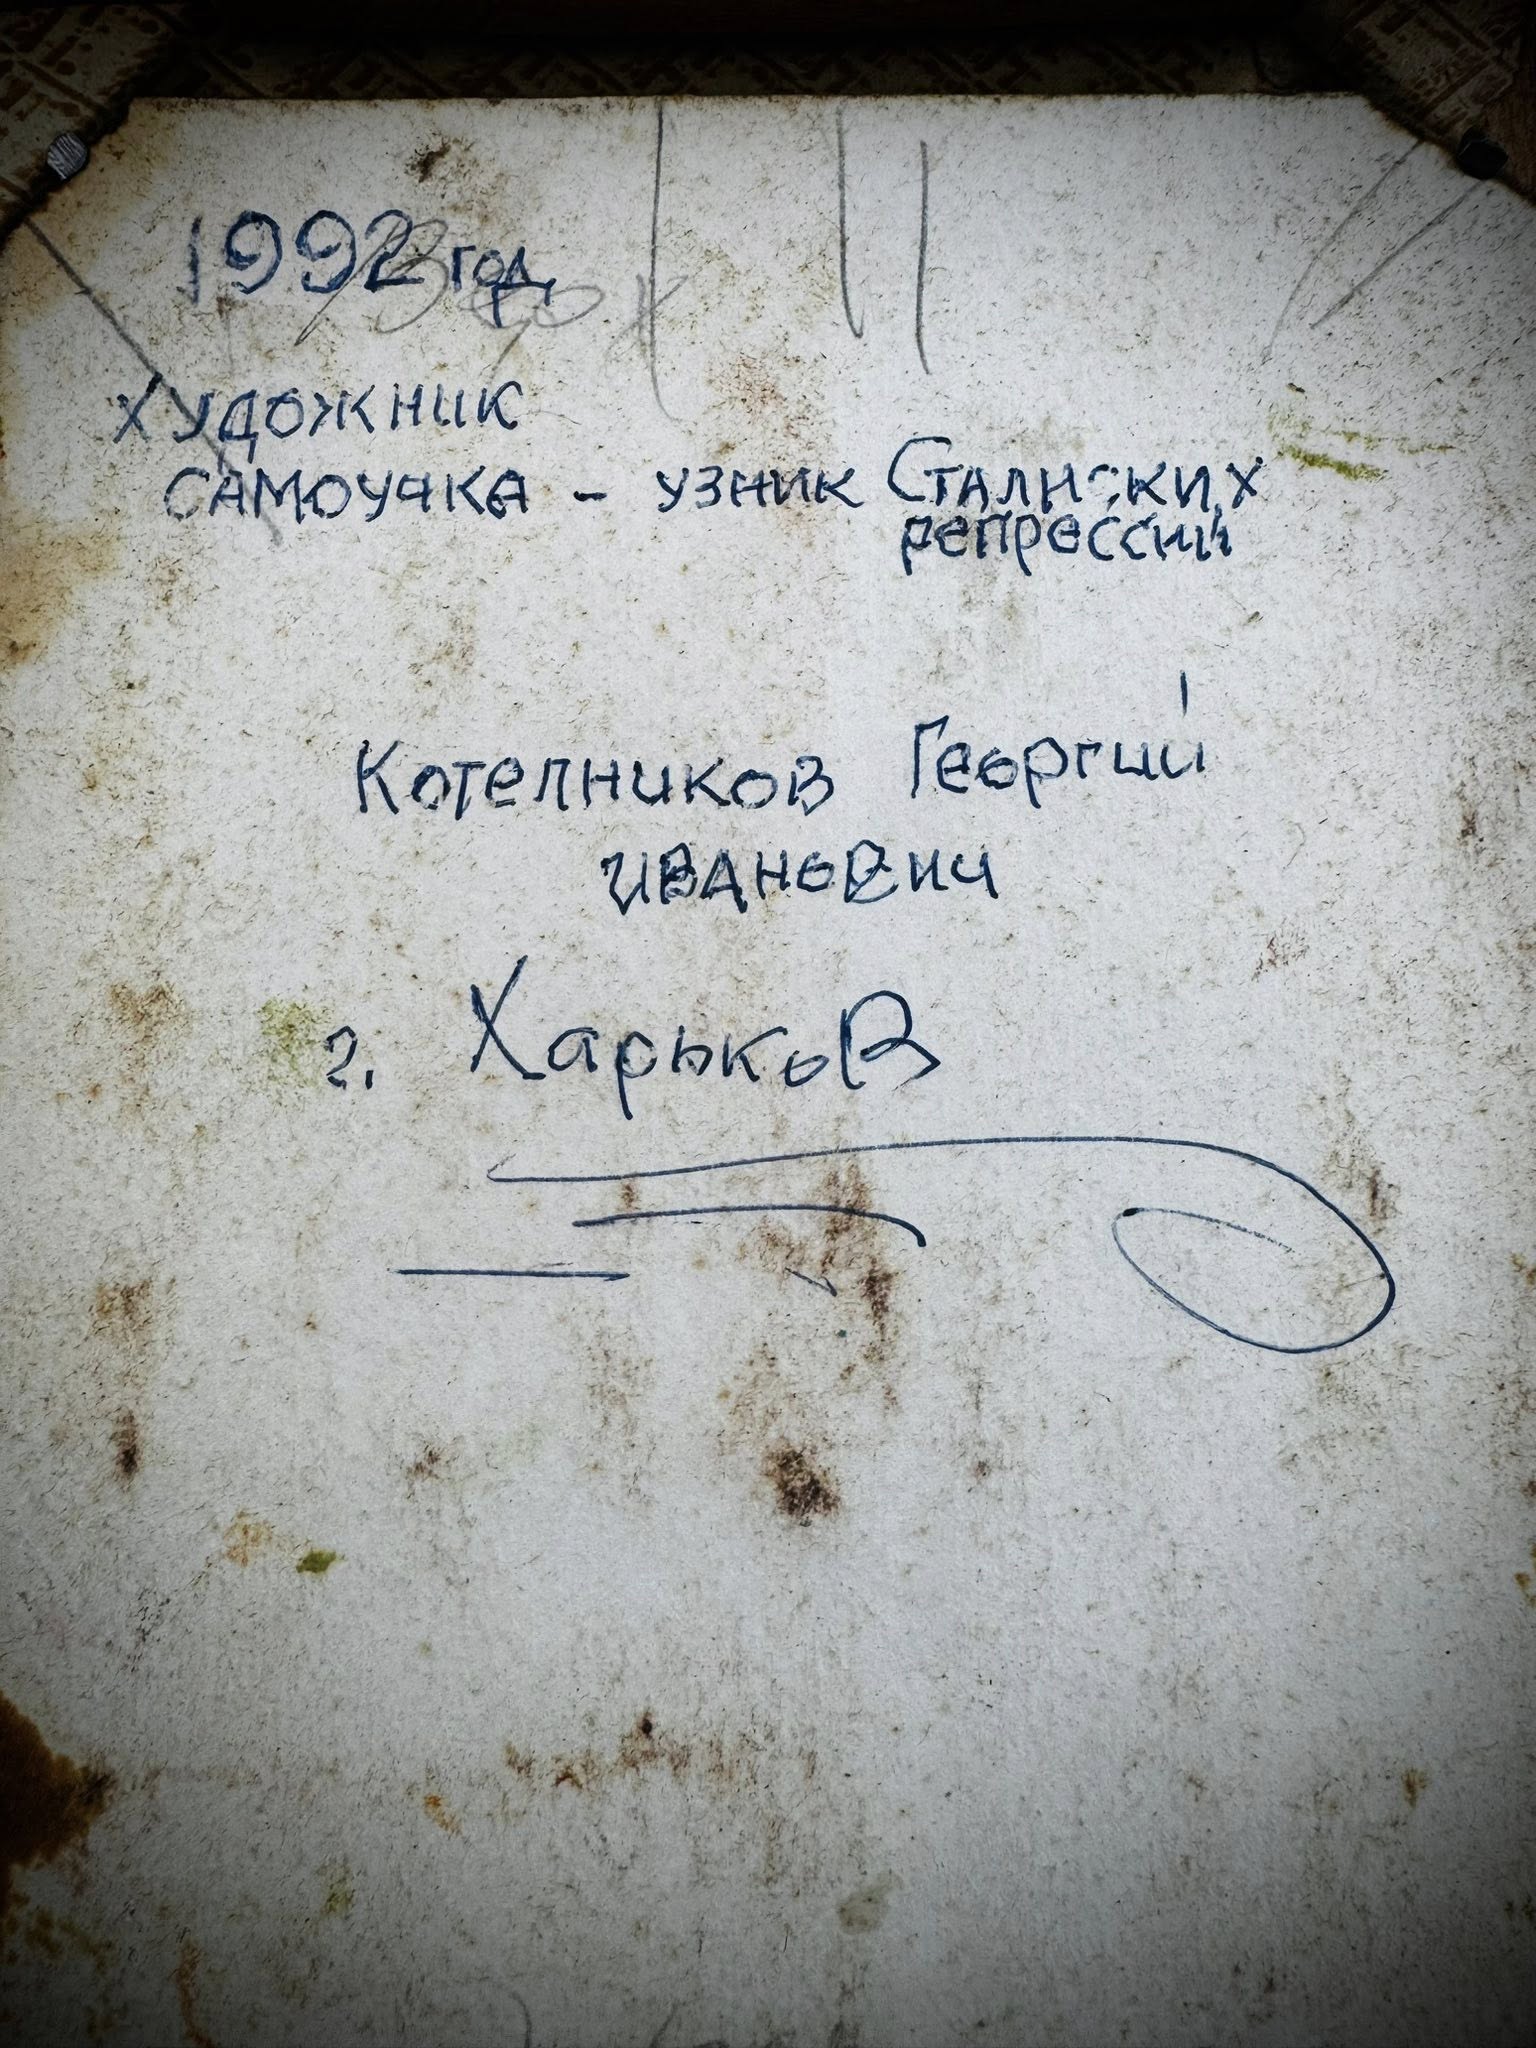 1992 год
художник
самоучка - узник Сталинских
репрессий
Котелников Георгий
Иванович
г. Харьков